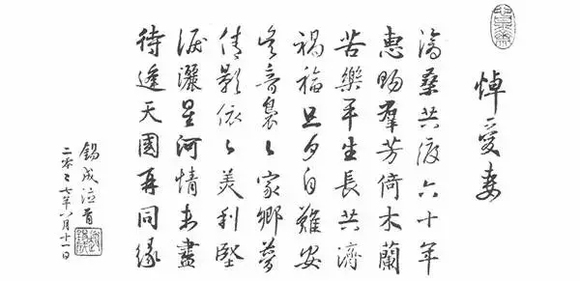 悼愛妻
滄桑共渡六十年
惠賜羣芳倚木蘭
苦樂平生長共濟
禍福旦夕自難安
音裊々家鄉夢
倩影依々美利堅
淚灑星河情未盡
待逢天國再同緣
錫成泣首
二零々七年八月十一日